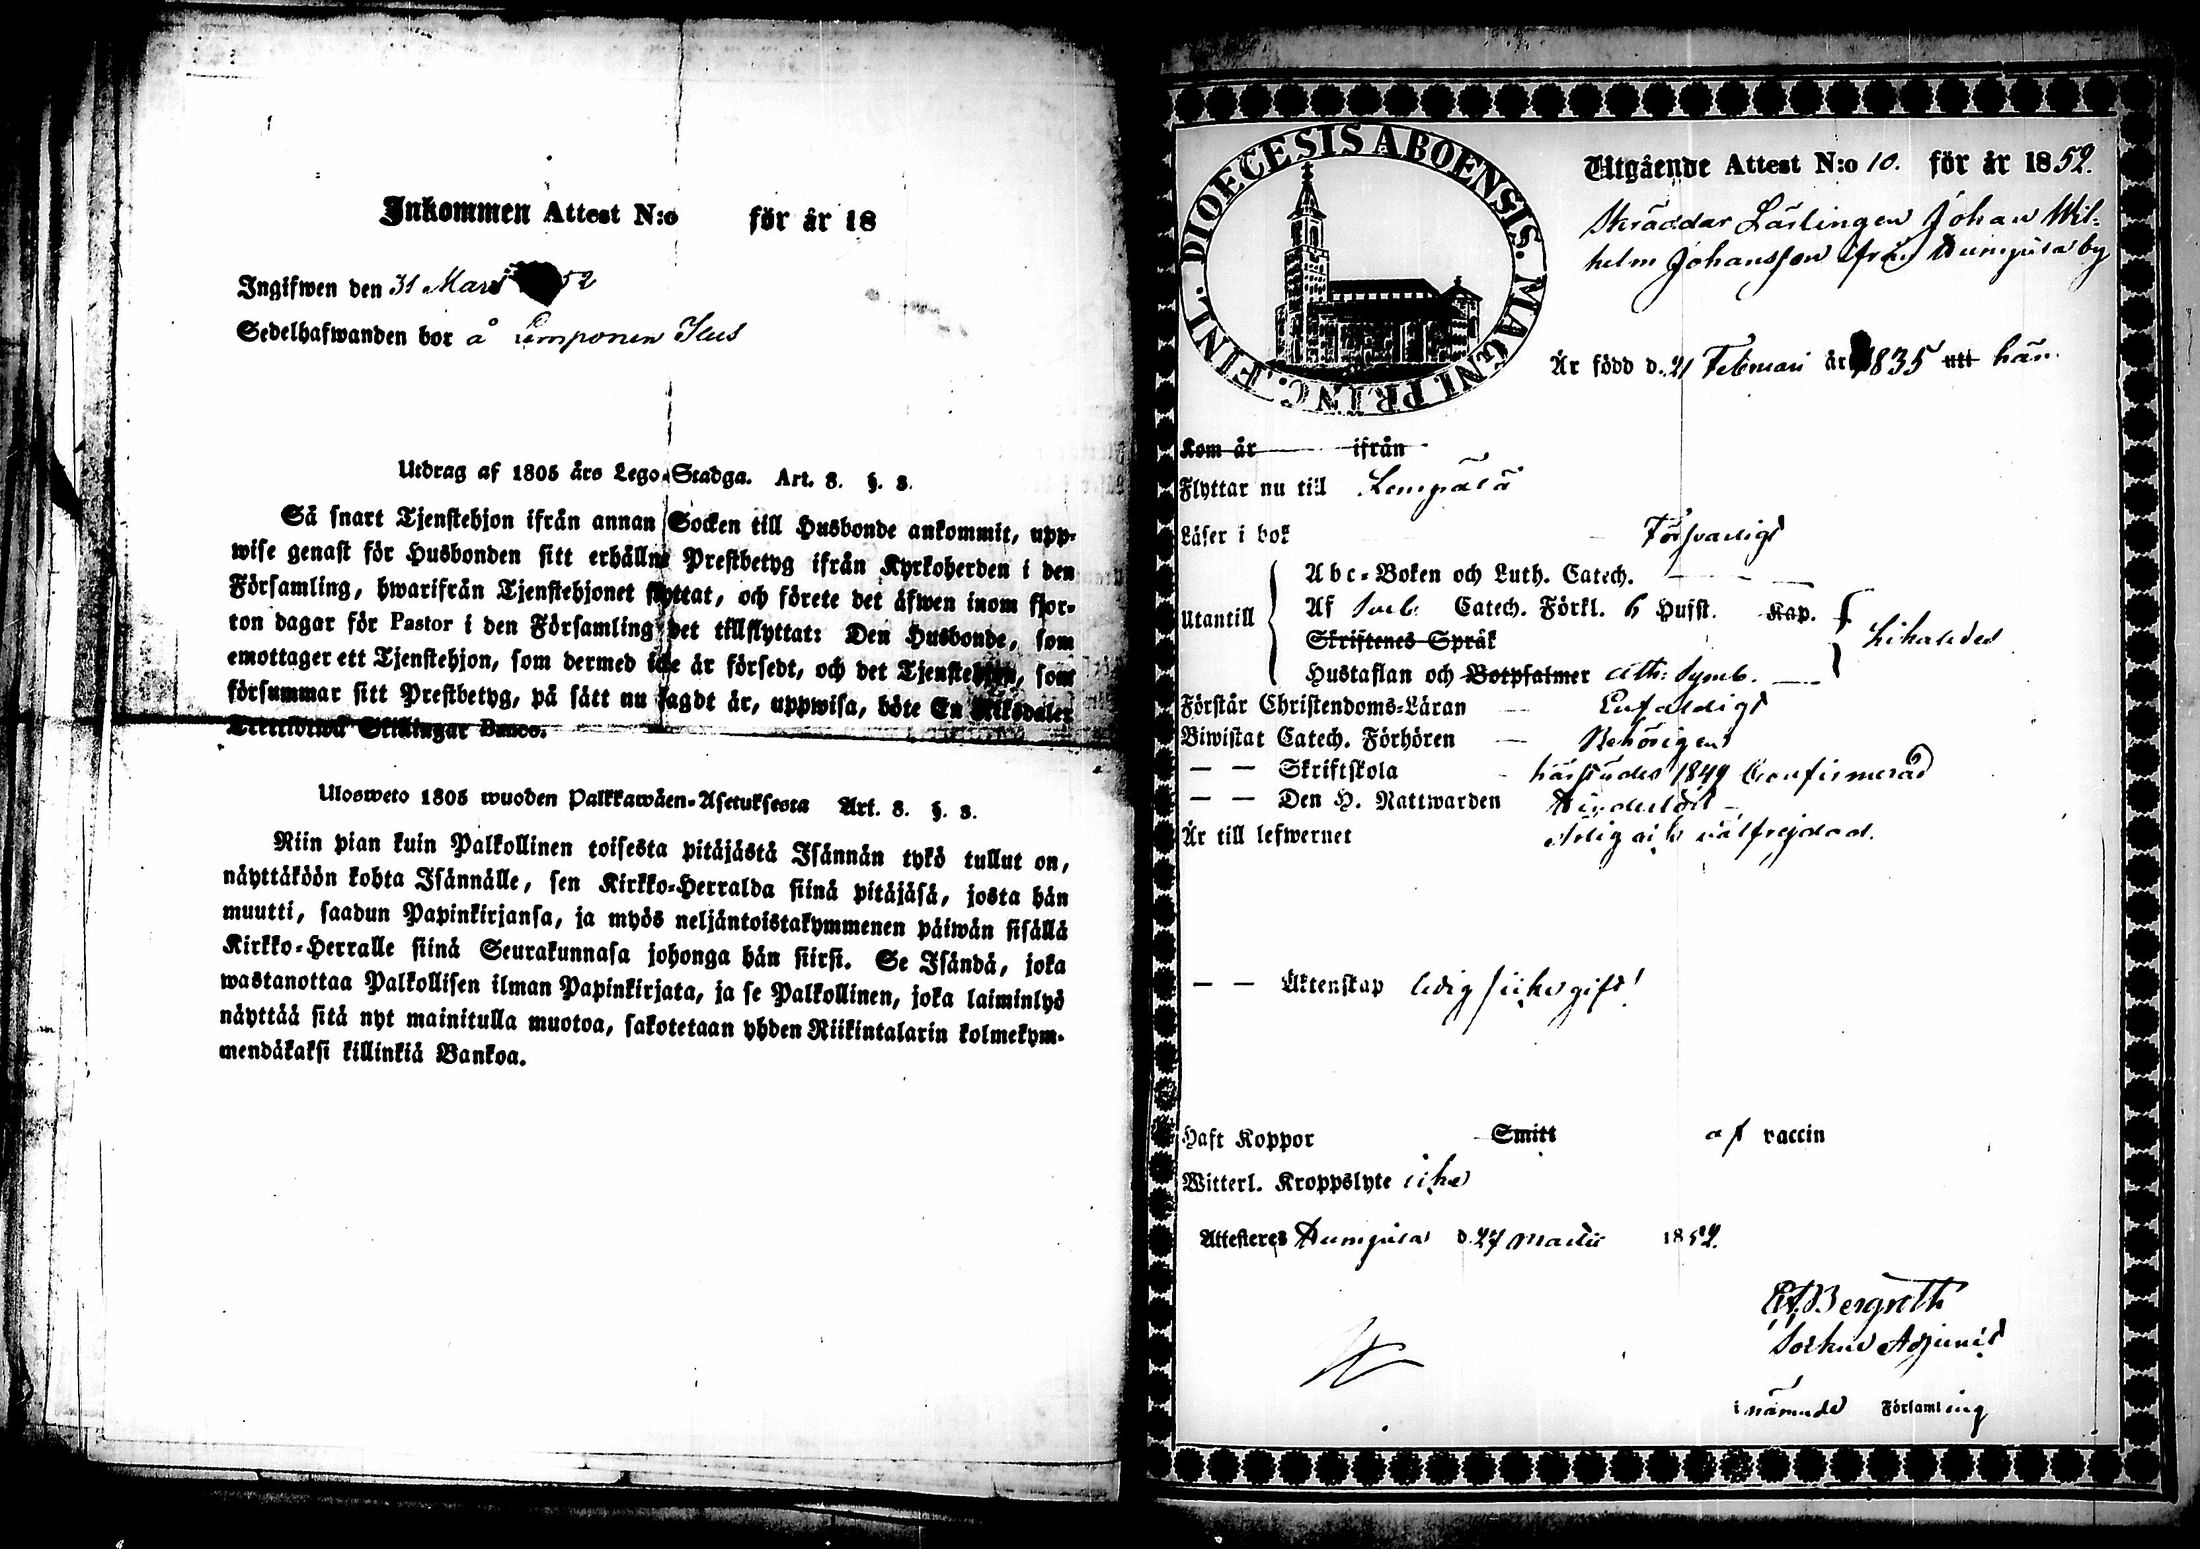 Inkommen Attest N:o för år 18
Ingifwen den 31 Mars 52
Sedelhafwanden bor å Lemponen Ilus
Utdrag af 1805 års Lego-Stadga. Art. 8. §. 3.
Så snart Tjenstehjon ifrån annan Socken till Husbonde ankommit, upp-
wise genast för Husbonden sitt erhållne Prestbetyg ifrån Kyrkoherden i den
Församling, hwarifrån Tjenstehjonet flyttat, och förete det äfwen inom fjor-
ton dagar för Pastor i den Församling det tillflyttat: Den Husbonde, som
emottager ett Tjenstehjon, som dermed icke är försedt, och det Tjenstehjon, som
försummar sitt Prestbetyg, på sätt nu sagdt är, uppwisa, böte En Riksdaler
Trettiotwå Skillingar Banco.
Ulosweto 1805 wuoden Palkkawäen-Asetuksesta Art. 8. §. 3.
Niin pian kuin Palkollinen toisesta pitäjästä Isännän tykö tullut on,
näyttäköön kohta Isännälle, sen Kirkko-Herralda siinä pitäjäsä, josta hän
muutti, saadun Papinkirjansa, ja myös neljäntoistakymmenen päiwän sisällä
Kirkko-Herralle siinä Seurakunnasa johonga hän siirsi. Se Isändä, joka
wastanottaa Palkollisen ilman Papinkirjata, ja se Palkollinen, joka laiminlyö
näyttää sitä nyt mainitulla muotoa, sakotetaan yhden Riikintalarin kolmekym-
mendäkaksi killinkiä Bankoa.
DIOECESIS ABOENSIS. MAGNI. PRINC. FINL.
Utgående Attest N:o 10. för år 1852.
Skräddar Lärlingen Johan Wil-
helm Johansson ifrån Kumpula by
Är född d. 21 Februari år 1835 utt här.
Kom år ifrån
Flyttar nu till Lempälä
Läser i bok Försvarligt
Abc-Boken och Luth. Catech.
Utantill Af Sveb. Catech. Förkl. 6 Hufst. Kap. Likaledes
Skriftenes Språk
Hustaflan och Botpsalmer Ath: Symb.
Förstår Christendoms-Läran Enfaldigt
Biwistat Catech. Förhören Behörigen
— — Skriftskola härstädes 1849 Confirmerad
— — Den H. Nattwarden Hinderlöst
Är till lefwernet Ärlig och välfrejdad.
— — Äktenskap ledig från gift!
Haft Koppor Smitt af vaccin
Witterl. Kroppslyte icke
Attesteres Kumpula d. 27 Martii 1852.
Bergroth
Sockne Adjunct
i nämnde Församling